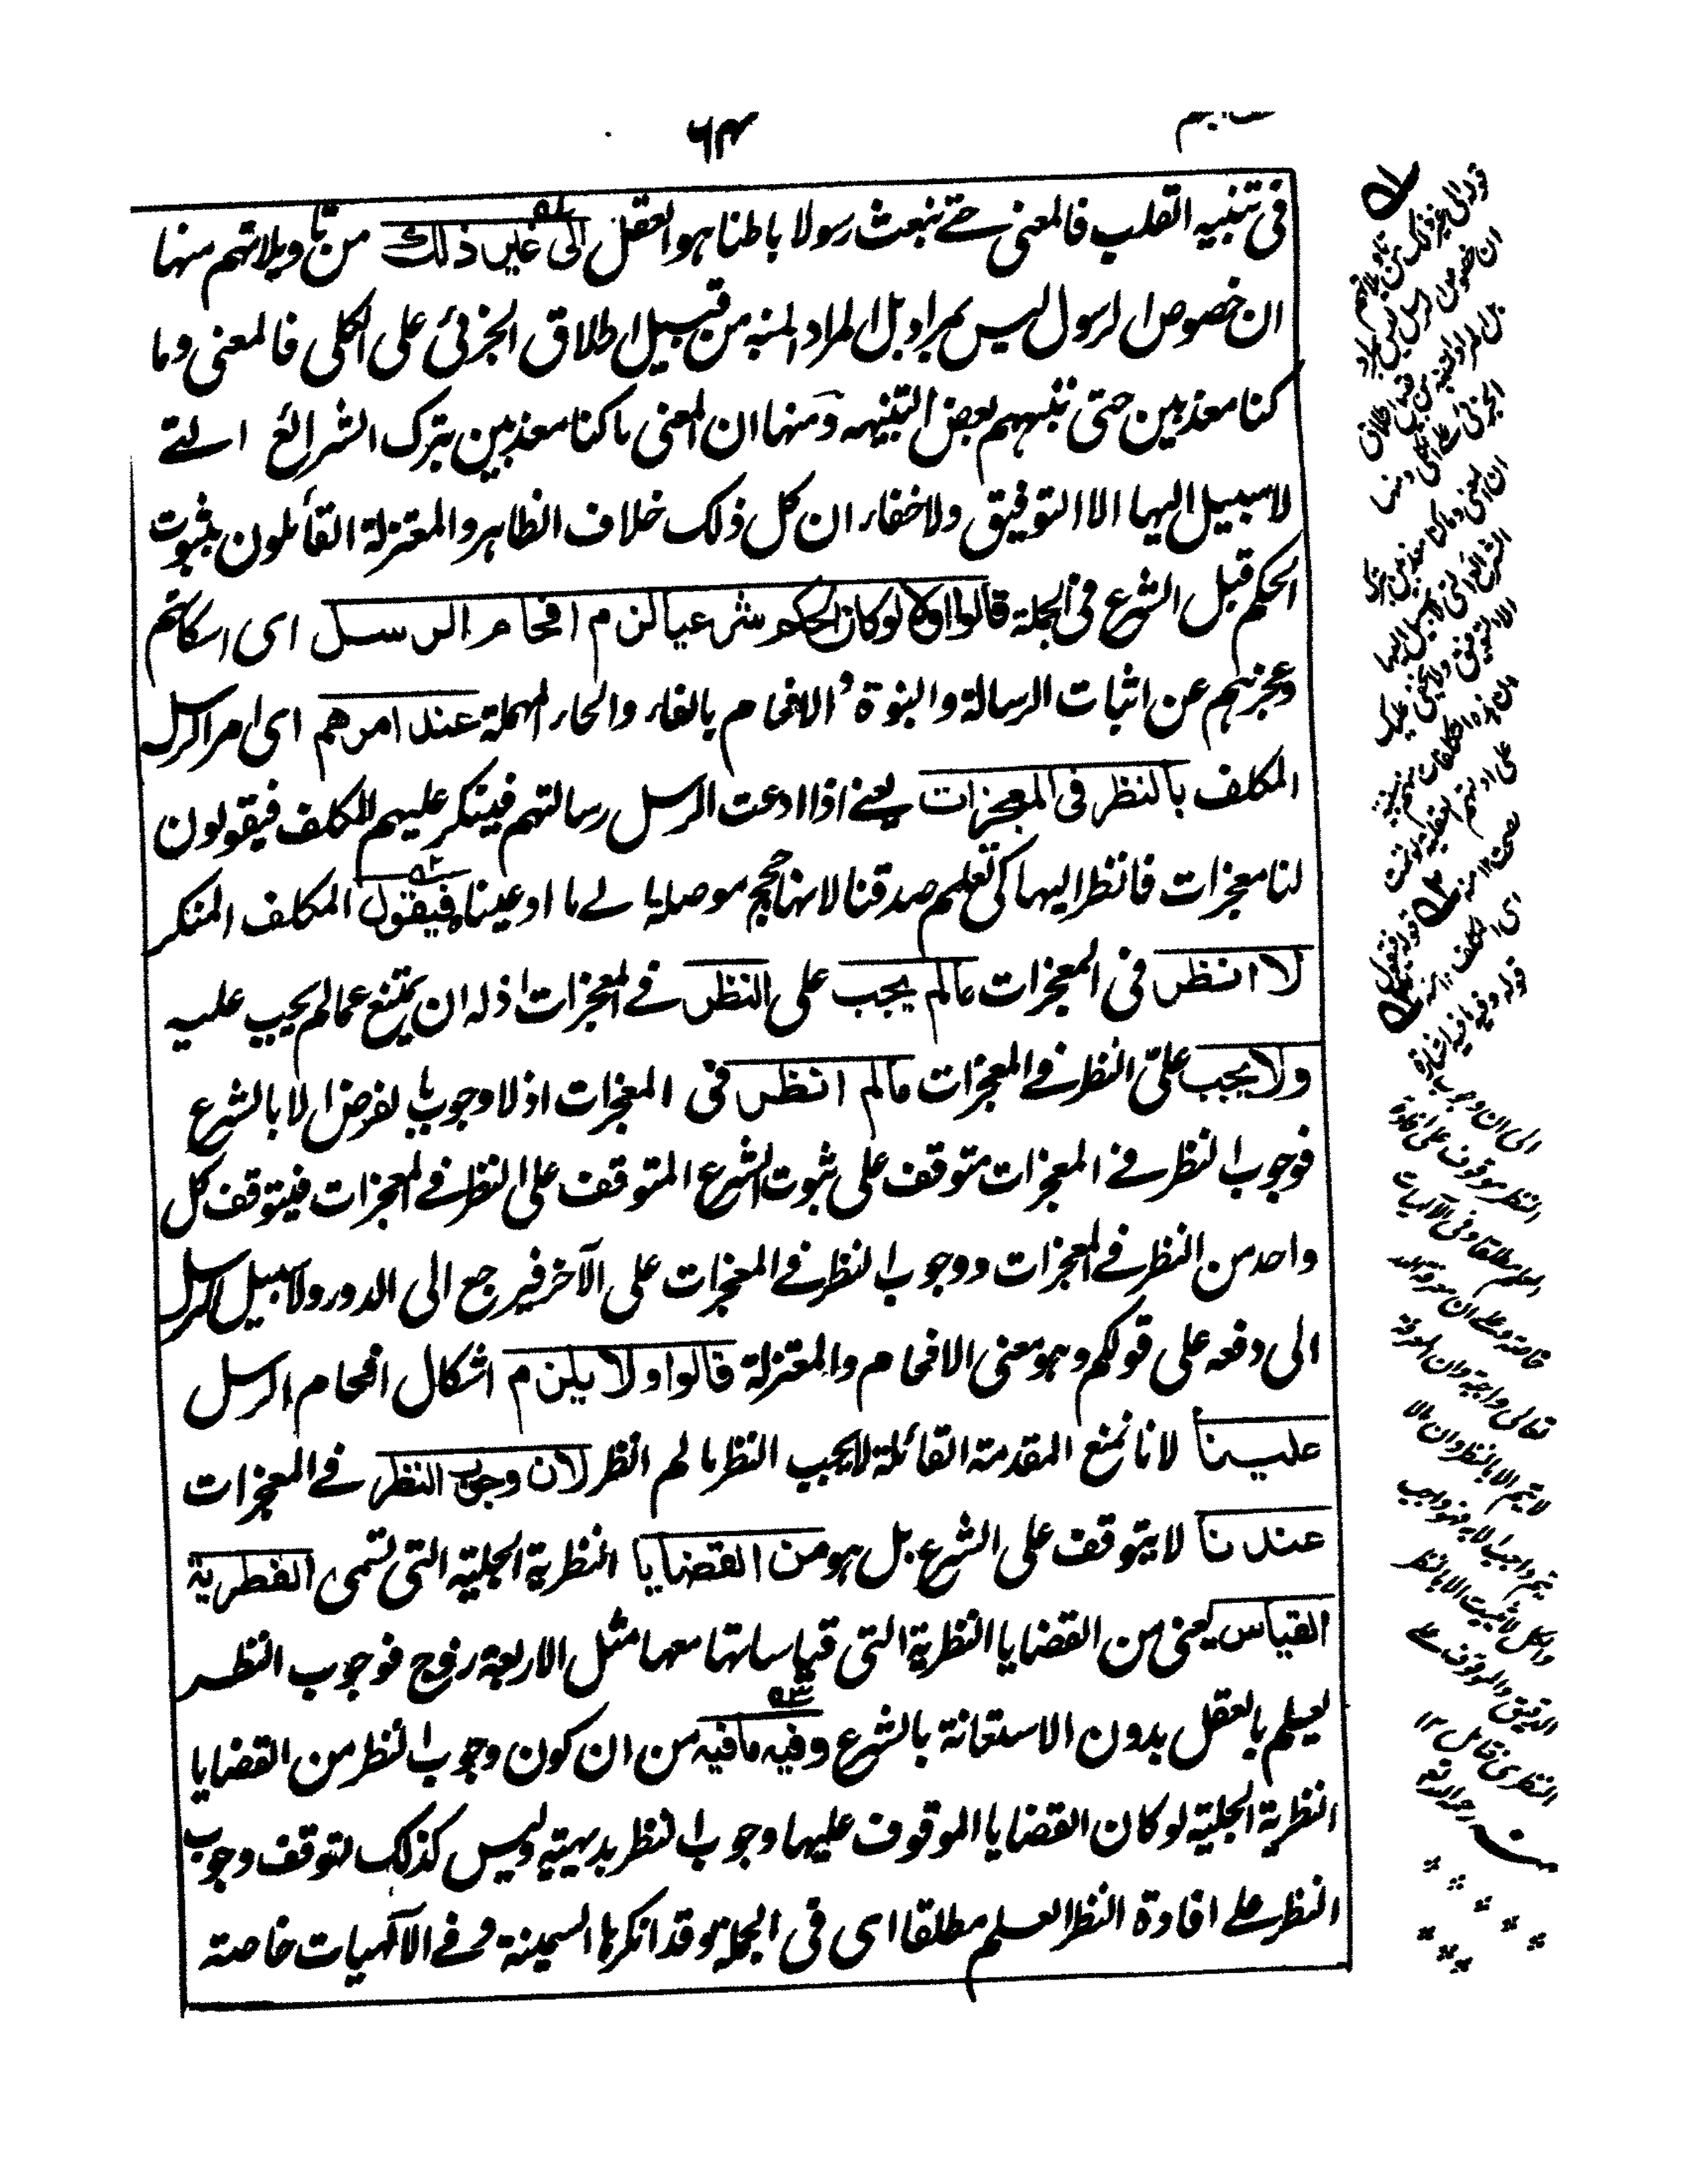 ٦٣
فى تنبيه القلب فالمعنى حتے نبعث رسولا باطنا هو العقل الى غير ذلك من تأويلاتهم منها
ان خصوص الرسول ليس بمراد بل المراد المنبه من قبيل اطلاق الجزئى على الكلى فالمعنى وما
كنا معذبين حتى ننبههم بعض التنبيه ومنها ان المعنى ما كنا معذبين بترك الشرائع التے
لا سبيل اليها الا التوقيق ولا خفاء ان كل ذلك خلاف الظاهر والمعتزلة القائلون بثبوت
الحكم قبل الشرع فى الجملة قالوا اولا لو كان الحكم شرعيا لزم افحام الرسل اى اسكاتهم
وعجزهم عن اثبات الرسالة والنبوة والافحام بالفاء والحاء المهملة عند امرهم اى امر الرسل
المكلف بالنظر فى المعجزات يعنے اذا ادعت الرسل رسالتهم فينكر عليهم المكلف فيقولون
لنا معجزات فانظر اليها كى تعلم صدقنا لانها حجج موصلة الے ما ادعيناه فيقول المكلف المنكر
لا انظر فى المعجزات مالم يجب على النظر فے المعجزات اذ له ان يمتنع عما لم يجب عليه
ولا يجب علىّ النظر فے المعجزات مالم انظر فى المعجزات اذ لا وجوب بالفرض الا بالشرع
فوجوب النظر فے المعجزات متوقف على ثبوت الشرع المتوقف على النظر فے المعجزات فيتوقف كل
واحد من النظر فے المعجزات ووجوب النظر فے المعجزات على الآخر فيرجع الى الدور ولا سبيل للرسل
الى دفعه على قولكم وهو معنى الافحام والمعتزلة قالوا ولا يلزم اشكال افحام الرسل
علينا لانا نمنع المقدمة القائلة لا يجب النظر ما لم انظر لان وجوب النظر فے المعجزات
عندنا لا يتوقف على الشرع بل هو من القضايا النظرية الجلية التى تسمى الفطرية
القياس يعنى من القضايا النظرية التى قياساتها معها مثل الاربعة زوج فوجوب النظر
يعلم بالعقل بدون الاستعانة بالشرع وفيه مافيه من ان كون وجوب النظر من القضايا
النظرية الجلية لو كان القضايا الموقوف عليها وجوب النظر بديهية وليس كذلك لتوقف وجوب
النظر علے افادة النظر العلم مطلقا اى فى الجملة وقد انكرها السمينة وفے الآلهيات خاصة
ان خصوص الرسل ليس بمراد
بل المراد المنبه من قبيل اطلاق
الجزئى على الكلى ومنها
الى ان وجوب
النظر موقوف على افادة
العلم مطلقا وفى الآلهيات
خاصة وعلى ان معرفة الله
تعالى واجبة وان المعرفة
لا تتم الا بالنظر وان ما لا
يتم الواجب الا به فهو واجب
والكل لا يثبت الا بالنظر
الدقيق والموقوف على
النظرى نظرى فتامل ١٢